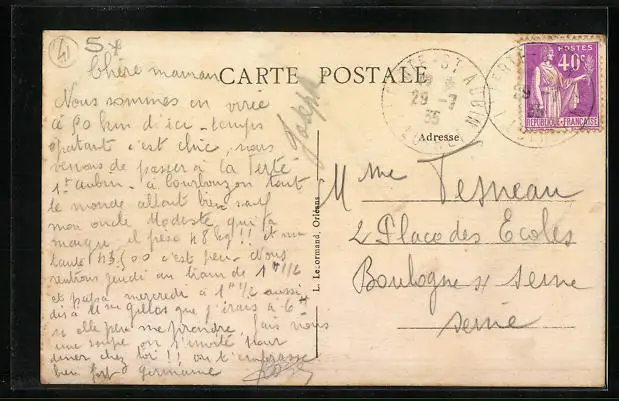 41
5
Chère maman
CARTE POSTALE
Nous sommes en virée
à 50 km d'ici - temps
épatant c'est chic, nous
venons de passer à La Ferté
St Aubin - à tout
le monde allant bien sauf
mon oncle Modeste qui l'a
il pèse 48 kg !! et ma
tante 43,500 c'est peu - Nous
rentrons jeudi au train de 1h 1/2
et papa mercredi à 1h 1/2 aussi
dis à que j'irais à 6h
si elle peu me prendre, fais nous
une soupe on s'invite pour
diner chez toi !! on t'embrasse
bien fort Germaine
Joseph
L. Lenormand, Orléans
LA FERTÉ-ST AUBIN
29-7
35
LOIRET
POSTES
40c
REPUBLIQUE-FRANÇAISE
Adresse
Mme Tesneau
2 Place des Ecoles
Boulogne s/ Seine
Seine